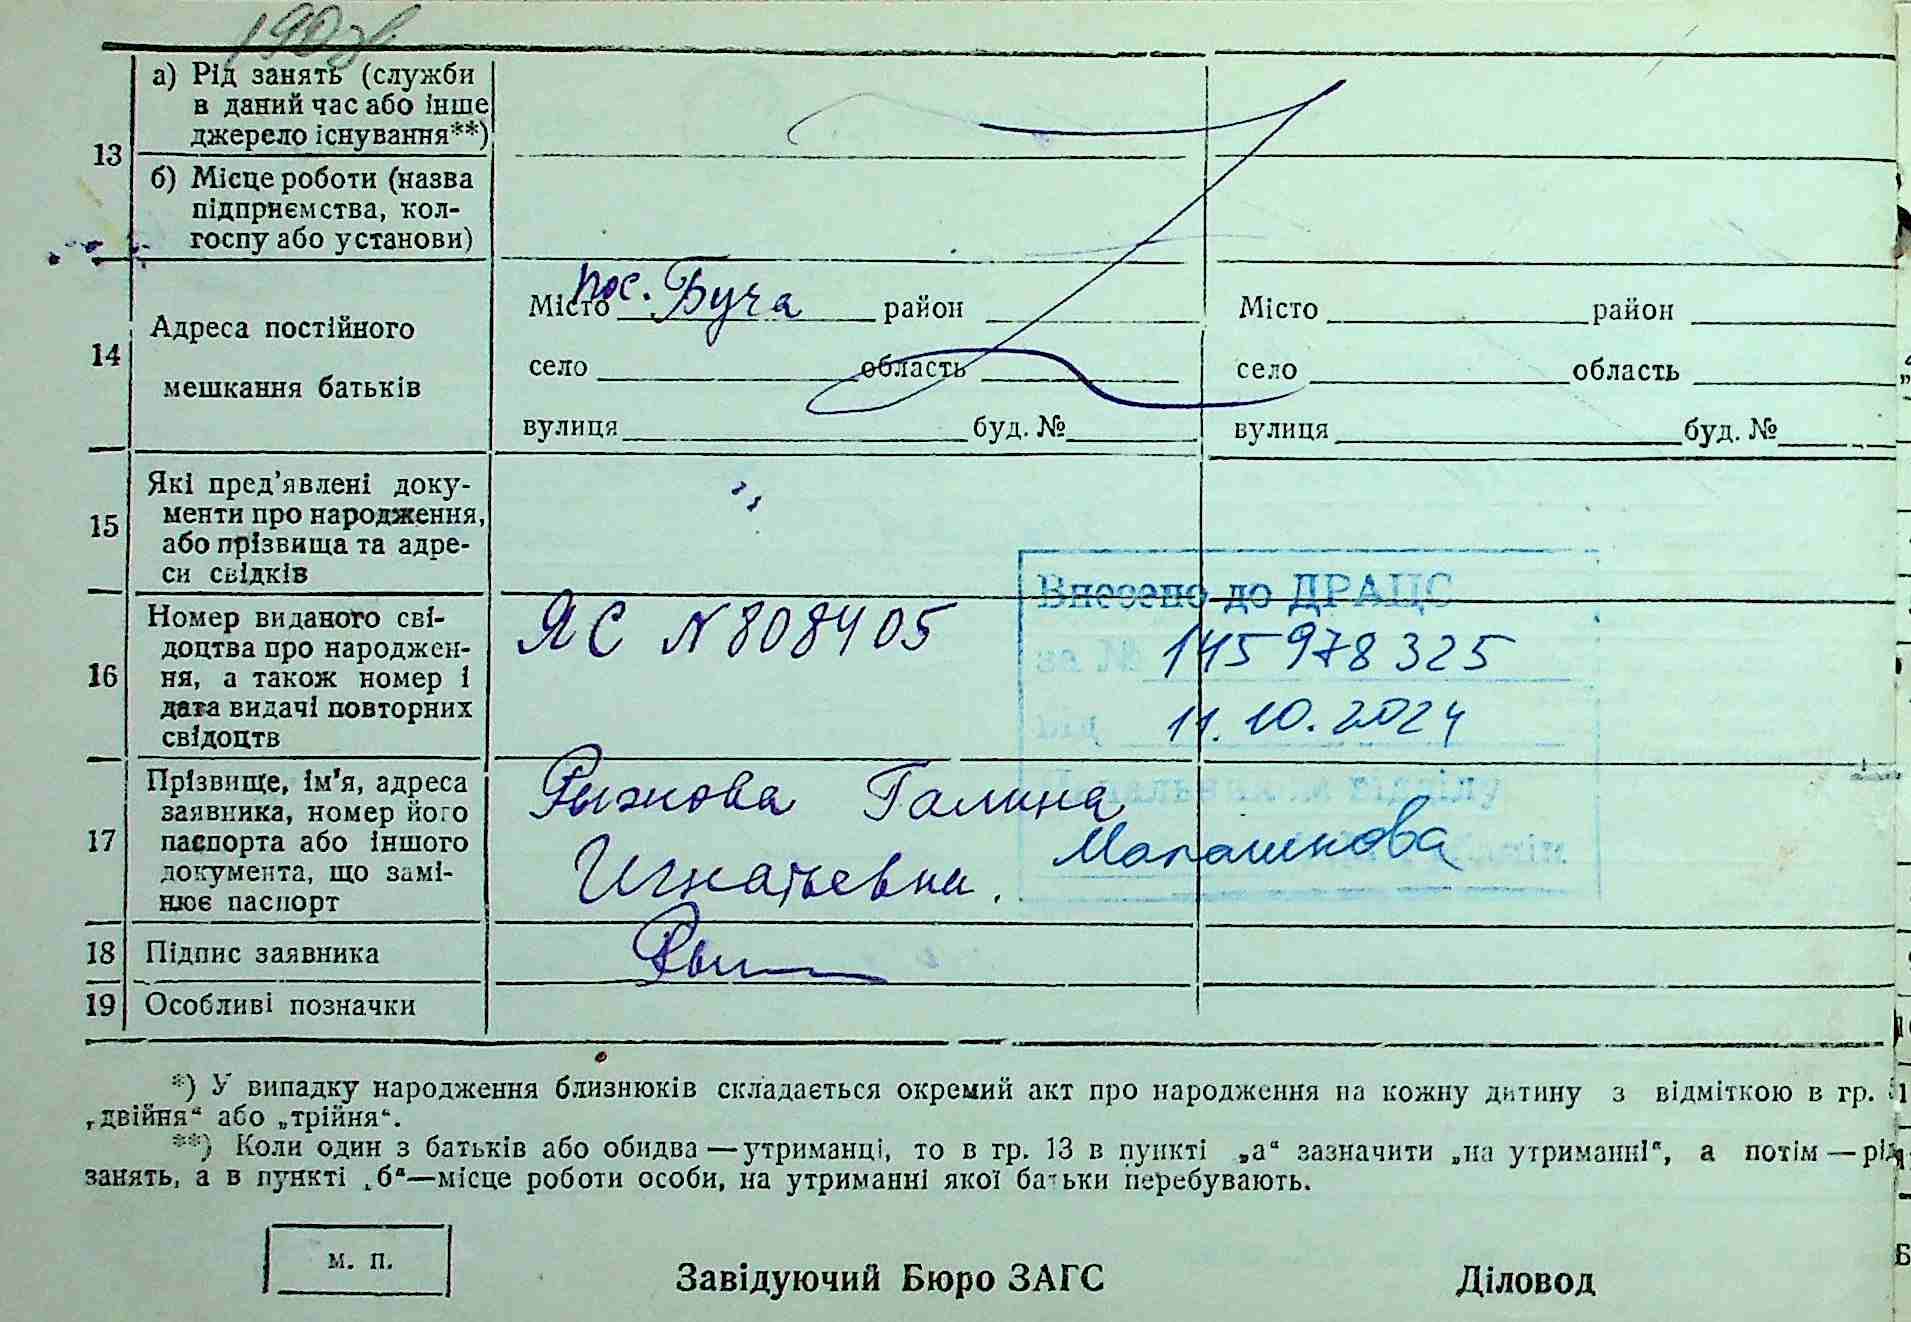 13
а) Рід занять (служби
в даний час або інше
джерело існування**)
б) Місце роботи (назва
підприємства, кол-
госпу або установи)
14
Адреса постійного
мешкання батьків
Місто пос. Буча район
село область
вулиця буд. №
Місто район
село область
вулиця буд. №
15
Які пред’явлені доку-
менти про народження,
або прізвища та адре-
си свідків
16
Номер виданого сві-
доцтва про народжен-
ня, а також номер і
дата видачі повторних
свідоцтв
ЯС N 808405
Внесено до ДРАЦС
за № 145978325
від 11.10.2024
Начальник відділу
17
Прізвище, ім’я, адреса
заявника, номер його
паспорта або іншого
документа, що замі-
нює паспорт
Рыжкова Галина
Игнатьевна.
18 Підпис заявника
19 Особливі позначки
*) У випадку народження близнюків складається окремий акт про народження на кожну дитину з відміткою в гр.
„двійня“ або „трійня“.
**) Коли один з батьків або обидва—утриманці, то в гр. 13 в пункті „а“ зазначити „на утриманні“, а потім—рід
занять, а в пункті „б“—місце роботи особи, на утриманні якої батьки перебувають.
м. п.
Завідуючий Бюро ЗАГС Діловод